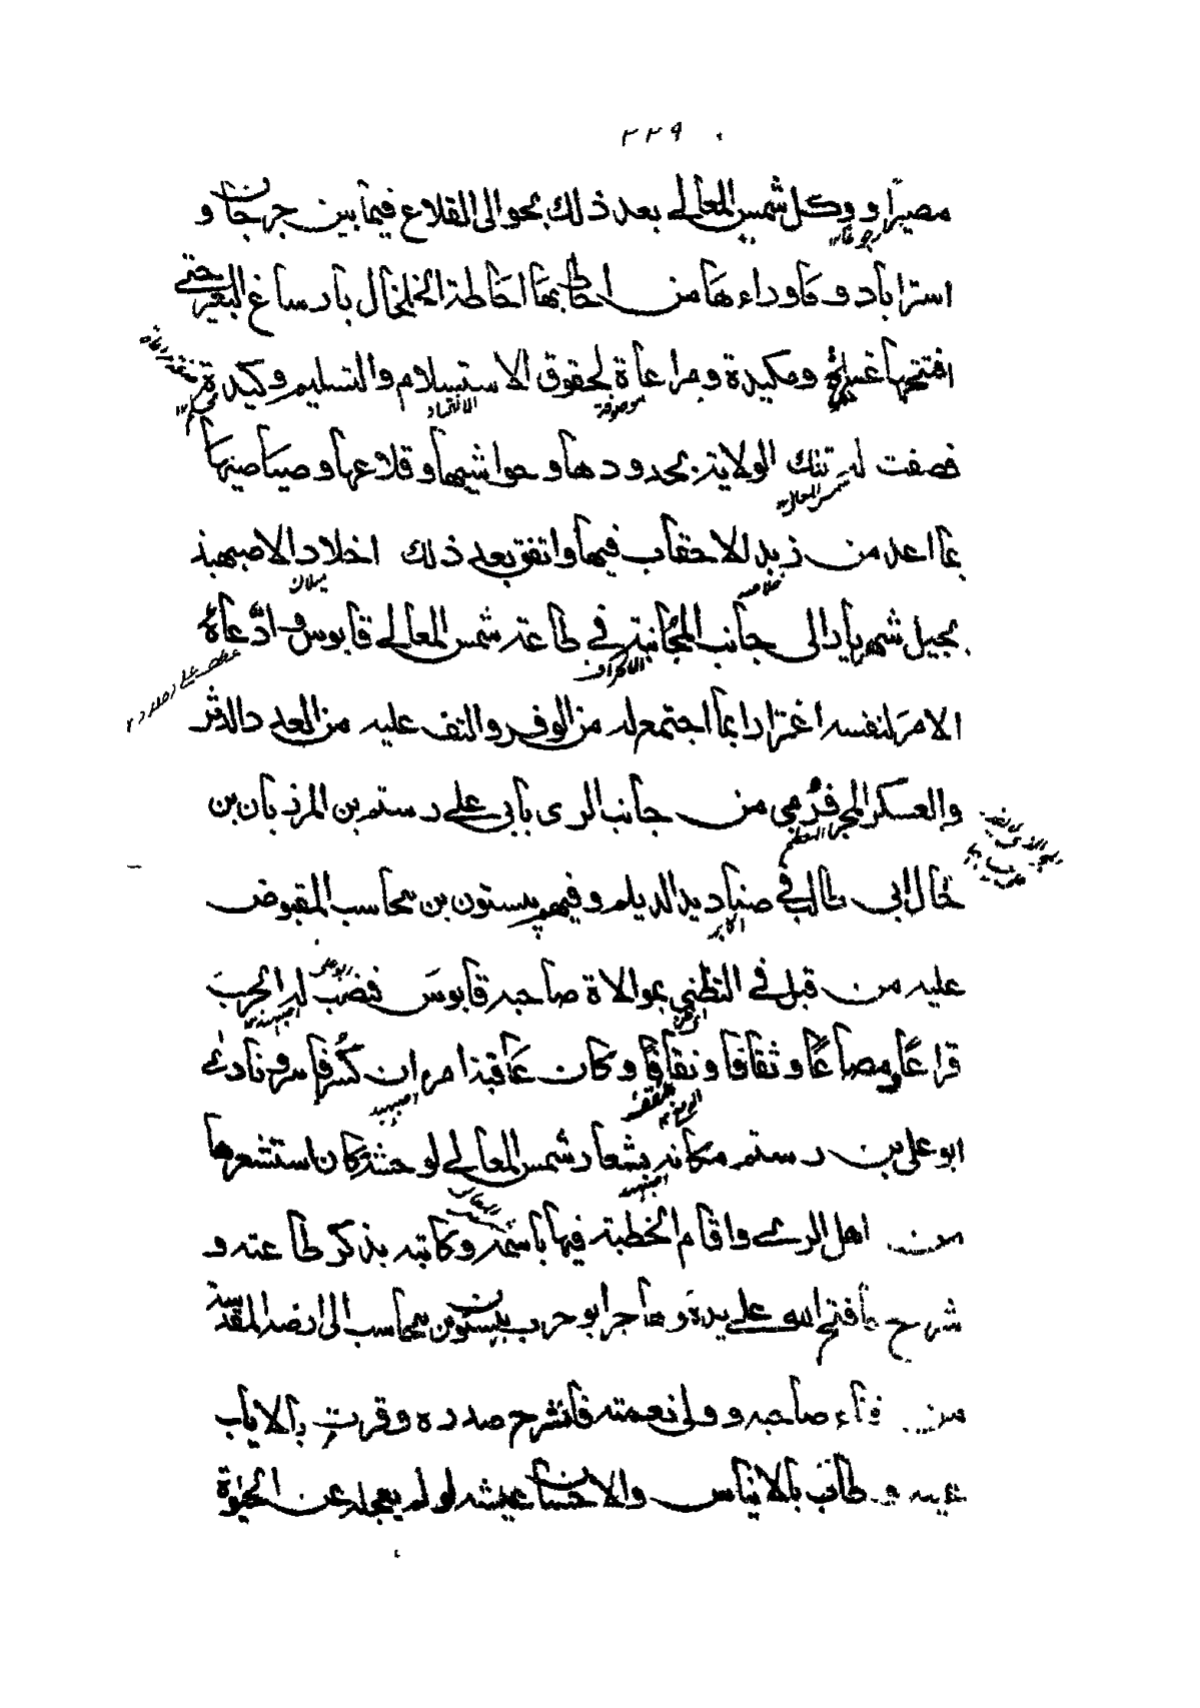 ٢٢٩
مصيرا ووكل شمس المعالى بعد ذلك بحوالى القلاع فيما بين جرجان و
استراباد وما وراءها من احاط بها احاطة الخلخال بارساغ البعير حتى
افتتحها غيلة ومكيدة ومراعاة لحقوق الاستسلام والتسليم وكيدة
موصوفة الانقياد
فصفت له تلك الولاية بحدودها وحواشيها وقلاعها وصياصيها
شمس المعالى
بما اعد من زبد الاحقاب فيها واتفق بعد ذلك اخلاد الاصبهبذ
خلاصه ميلان
بجبل شهريار الى جانب المجانبة فى طاعة شمس المعالى قابوس وادعاؤه
الانحراف
الامر لنفسه اغترارا بما اجتمع له من الوفر والتف عليه من العدد الدثر
والعسكر المجر فرمى من جانب الرى بابى على رستم بن المرزبان بن
العظيم
خال ابى طالب فى صناديد الديلم وفيهم بيستون بن بيجاسب المقبوض
الاكابر
عليه من قبل فى التظنى بموالاة صاحبه قابوس فنصب له الحرب
ابوعلى اصبهبد
قراعا ومصاعا وثقافا ونقافا وكان عاقبة امره ان كسر فاسر ونادى
اصبهبد
ابو على بن رستم مكانه بشعار شمس المعالى لوحشة كان استشعرها
اصبهبد
من اهل الرى واقام الخطبة فيها باسمه وكاتبه بذكر طاعته و
شرح ما فتح الله على يده وهاجر ابو حرب بيستون بن بيجاسب الى ارضه المقدسة
من فناء صاحبه وولى نعمته فانشرح صدره وقرت بالاياب
عينه وطاب بالايناس والاحسان عيشه لو لم يعجله عن الحيوة